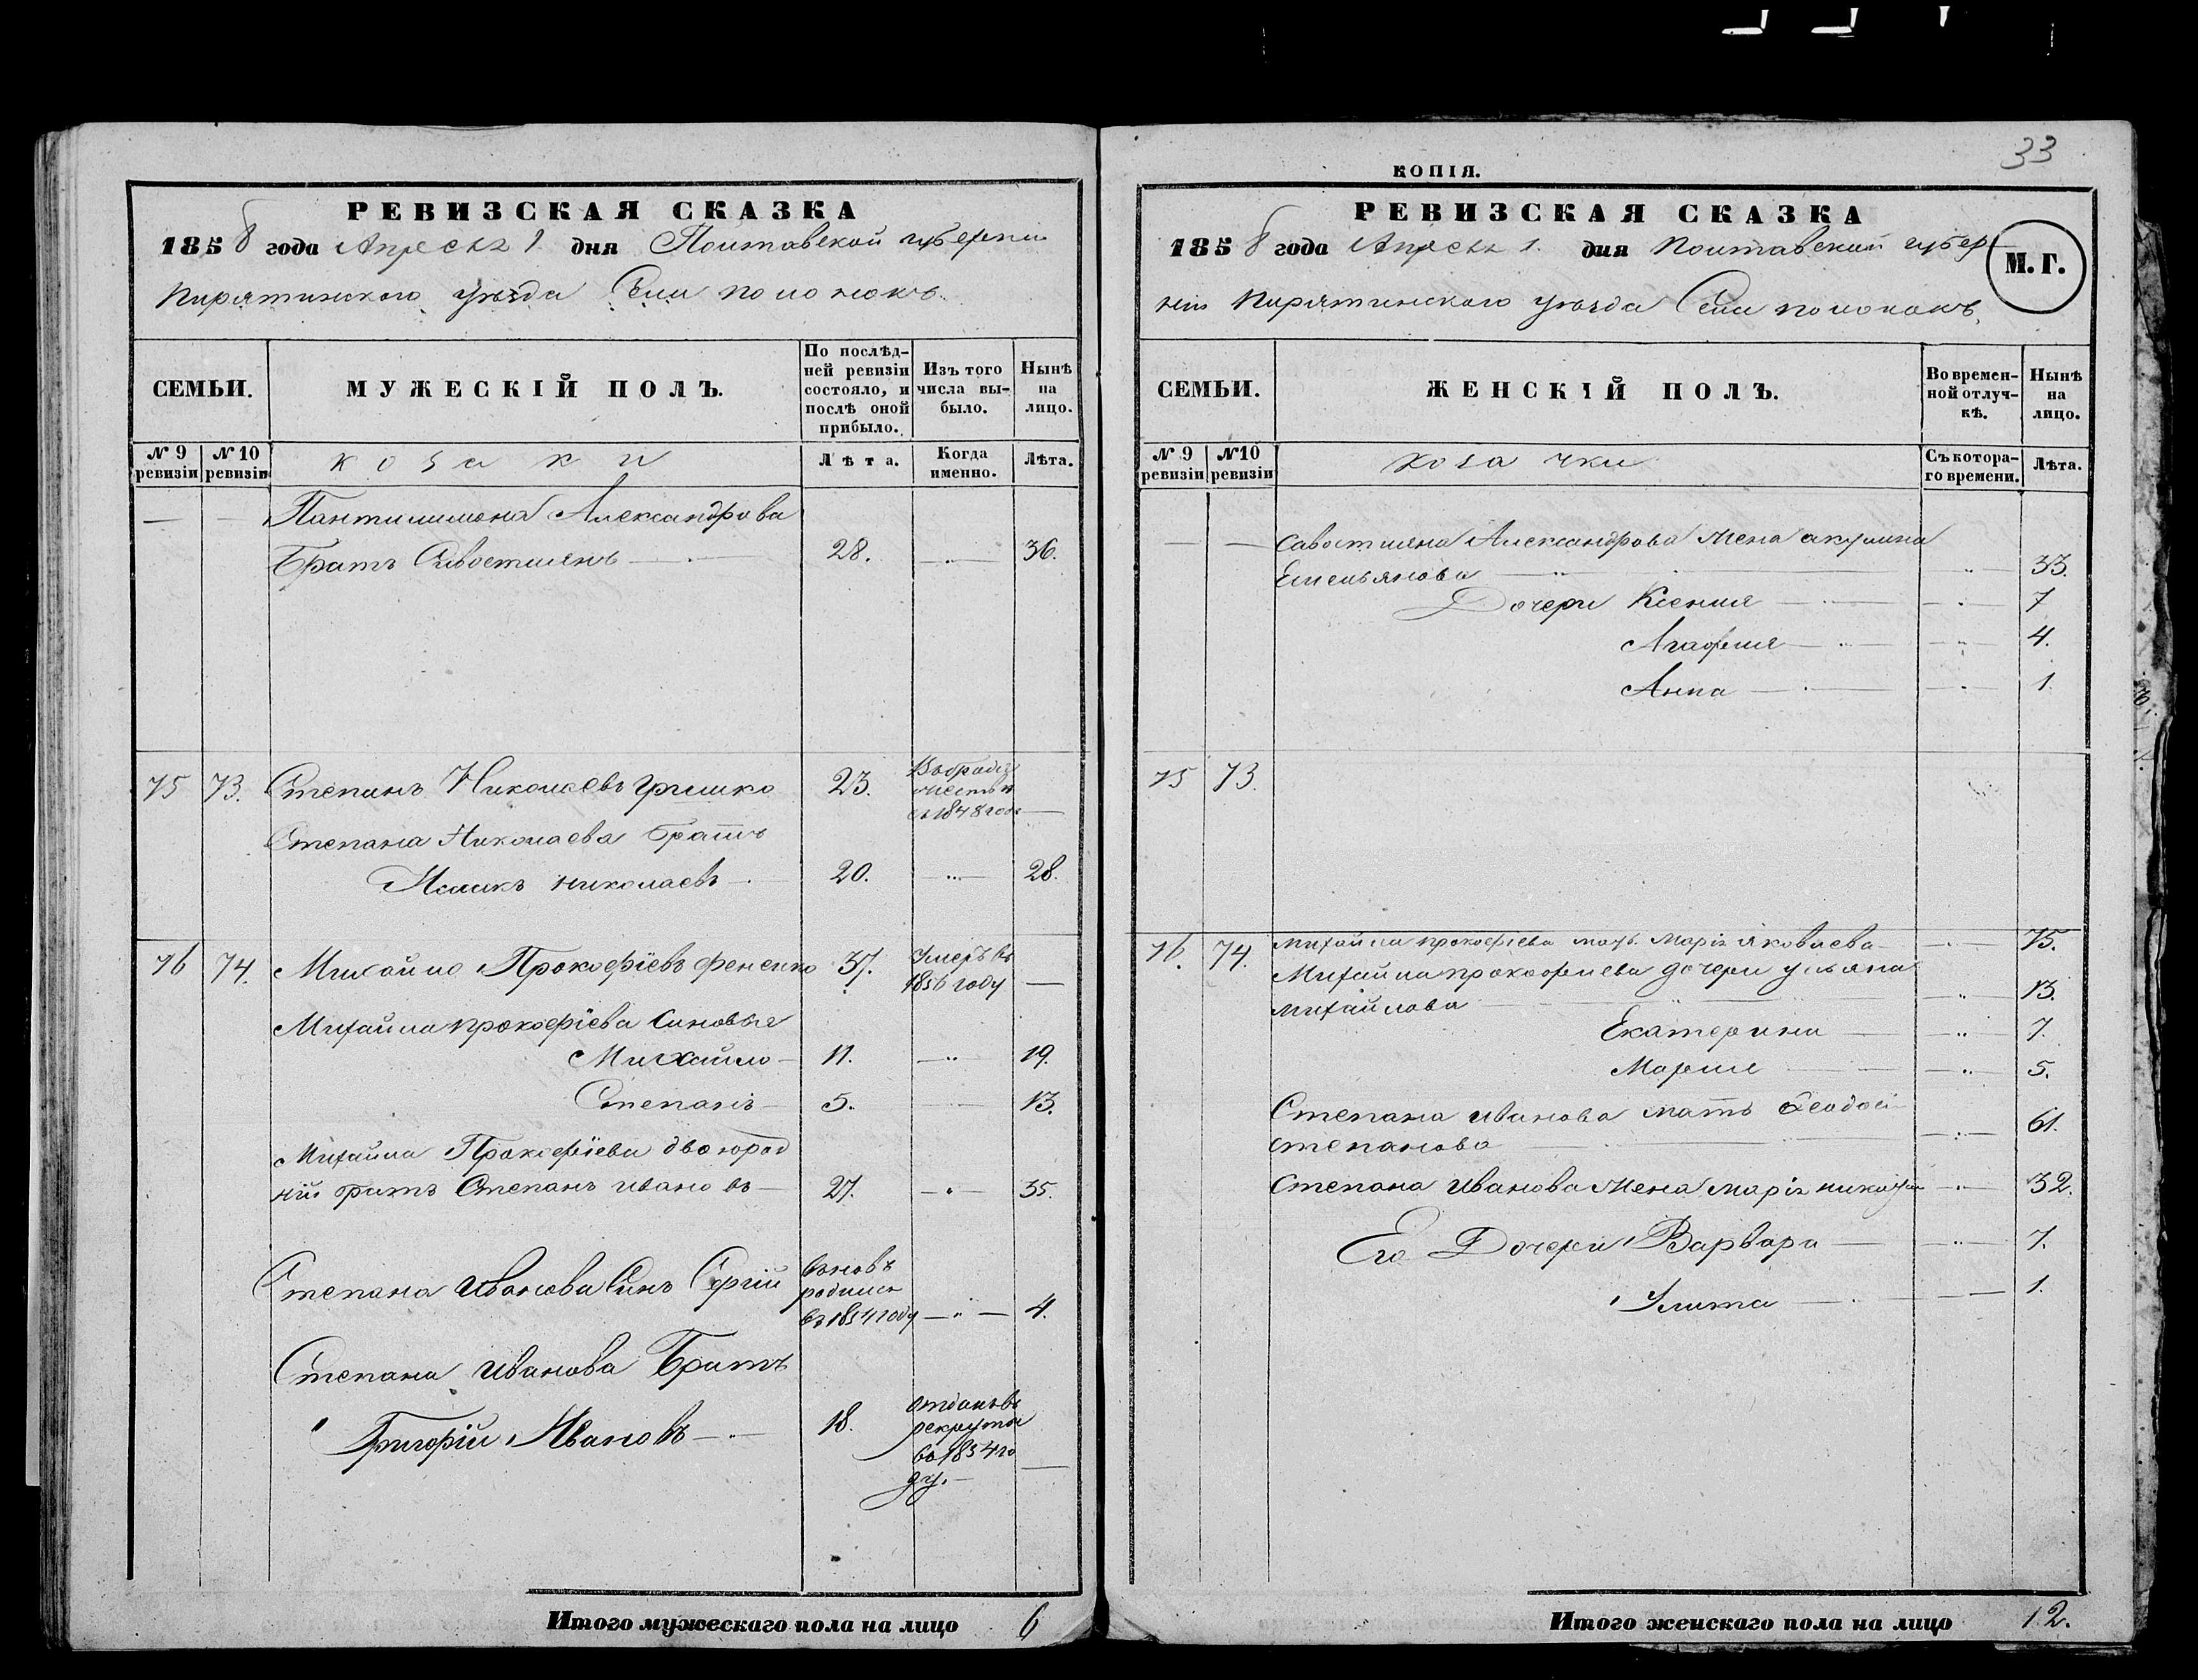 РЕВИЗСКАЯ СКАЗКА
1858 года Апреля 1 дня Полтавской губернии
Пирятинского уѣзда Села
СЕМЬИ.
МУЖЕСКІЙ ПОЛЪ.
По послѣд-
ней ревизіи
состояло, и
послѣ оной
прибыло.
Изъ того
числа вы-
было.
Нынѣ
на
лицо.
№ 9
ревизіи
№ 10
ревизіи
козаки
Лѣта.
Когда
именно.
Лѣта.
— — Пантилимона Александрова
Братъ Савостиянъ — 28. — 36.
75 73. Степанъ Николаевъ Гришко 23.
съ 1848 года —
Степана Николаева братъ
николаевъ — 20. — 28.
76 74. Михайло Прокофіевъ Фененко 37. Умеръ въ
1856 году —
Михайла прокофіева синовья
Михайло — 11. — 19.
Степанъ — 5. — 13.
Михайла Прокофіева двоюрод
ній братъ Степанъ ивановъ — 27. — 35.
Степана Иванова Синъ Сергій вновь
родился
въ 1854 году — 4.
Степана Иванова Братъ
Григорій Ивановъ — 18. отданъ въ
рекруты
въ 1854 го
ду. —
Итого мужескаго пола на лицо 6
33
КОПІЯ.
РЕВИЗСКАЯ СКАЗКА
1858 года Апреля 1. дня Полтавской губер
ніи Пирятинского уѣзда Села
М. Г.
СЕМЬИ.
ЖЕНСКІЙ ПОЛЪ.
Во времен-
ной отлуч-
кѣ.
Нынѣ
на
лицо.
№ 9
ревизіи
№ 10
ревизіи
козачки
Съ котора-
го времени.
Лѣта.
— — Савостияна Александрова жена акулина
Емельянова — 33.
Дочери Ксения — 7
Агафия — 4.
Анна — 1.
75 73.
76. 74. михайла прокофіева мать Марія яковлева — 75.
Михайла прокофиева дочери ульяна
михайлова — 13.
Екатерина — 7.
Мария — 5.
Степана иванова мать Феодосі
степанова — 61.
Степана Иванова жена марія — 32.
Его Дочери Варвара — 7.
Улита — 1.
Итого женскаго пола на лицо 12.